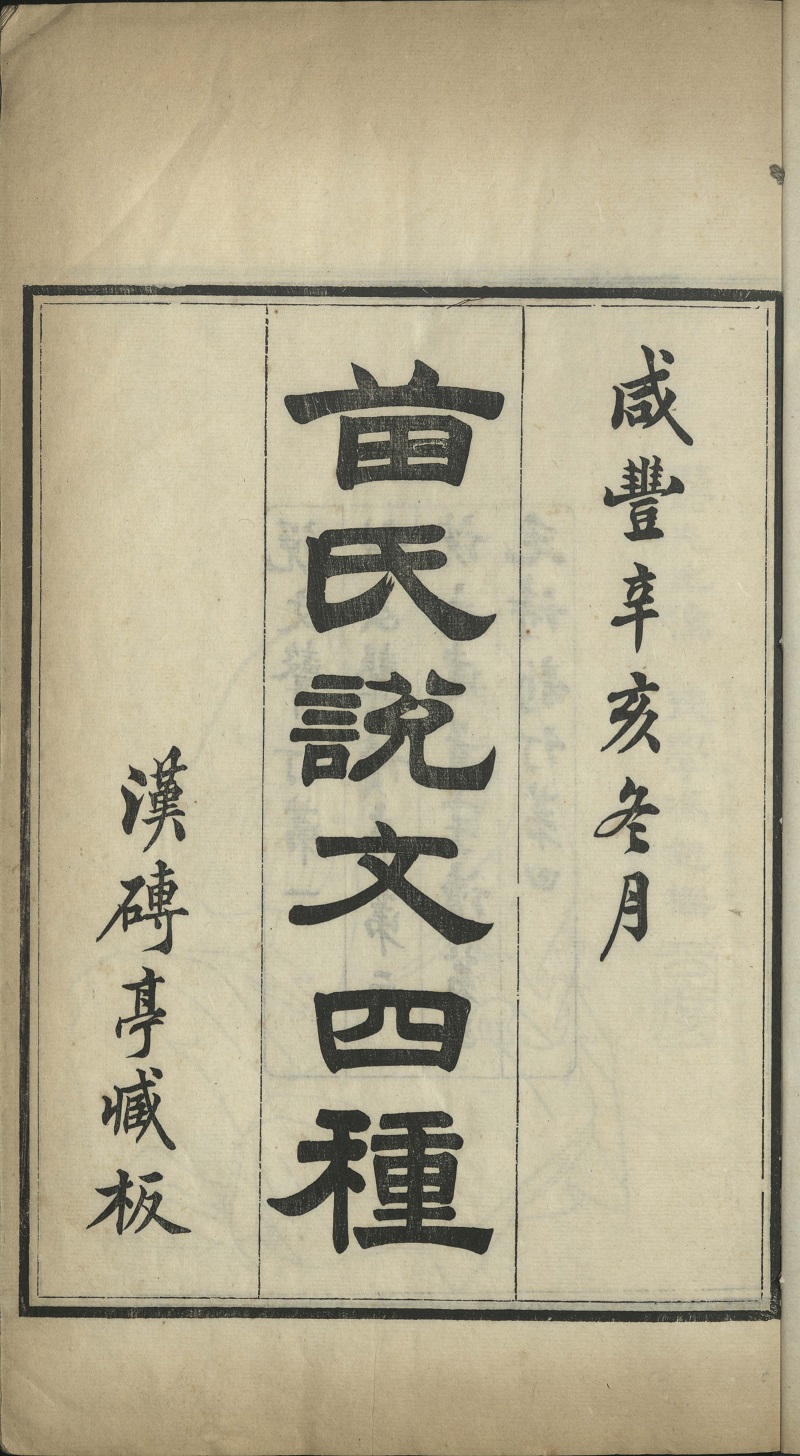 咸豐辛亥冬月
苗氏說文四種
漢磚亭臧板